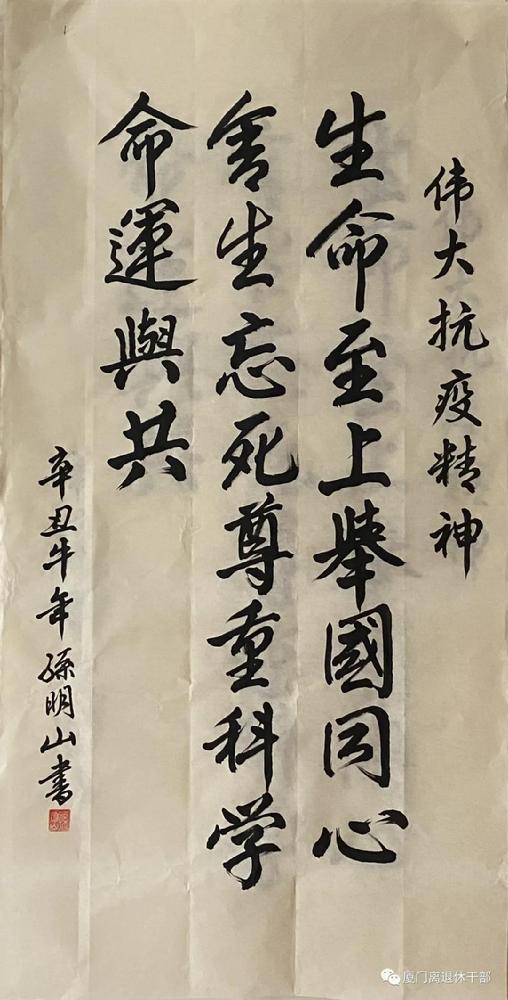 伟大抗疫精神
生命至上舉國同心
舍生忘死尊重科学
命運與共
辛丑牛年孫明山書
厦门离退休干部